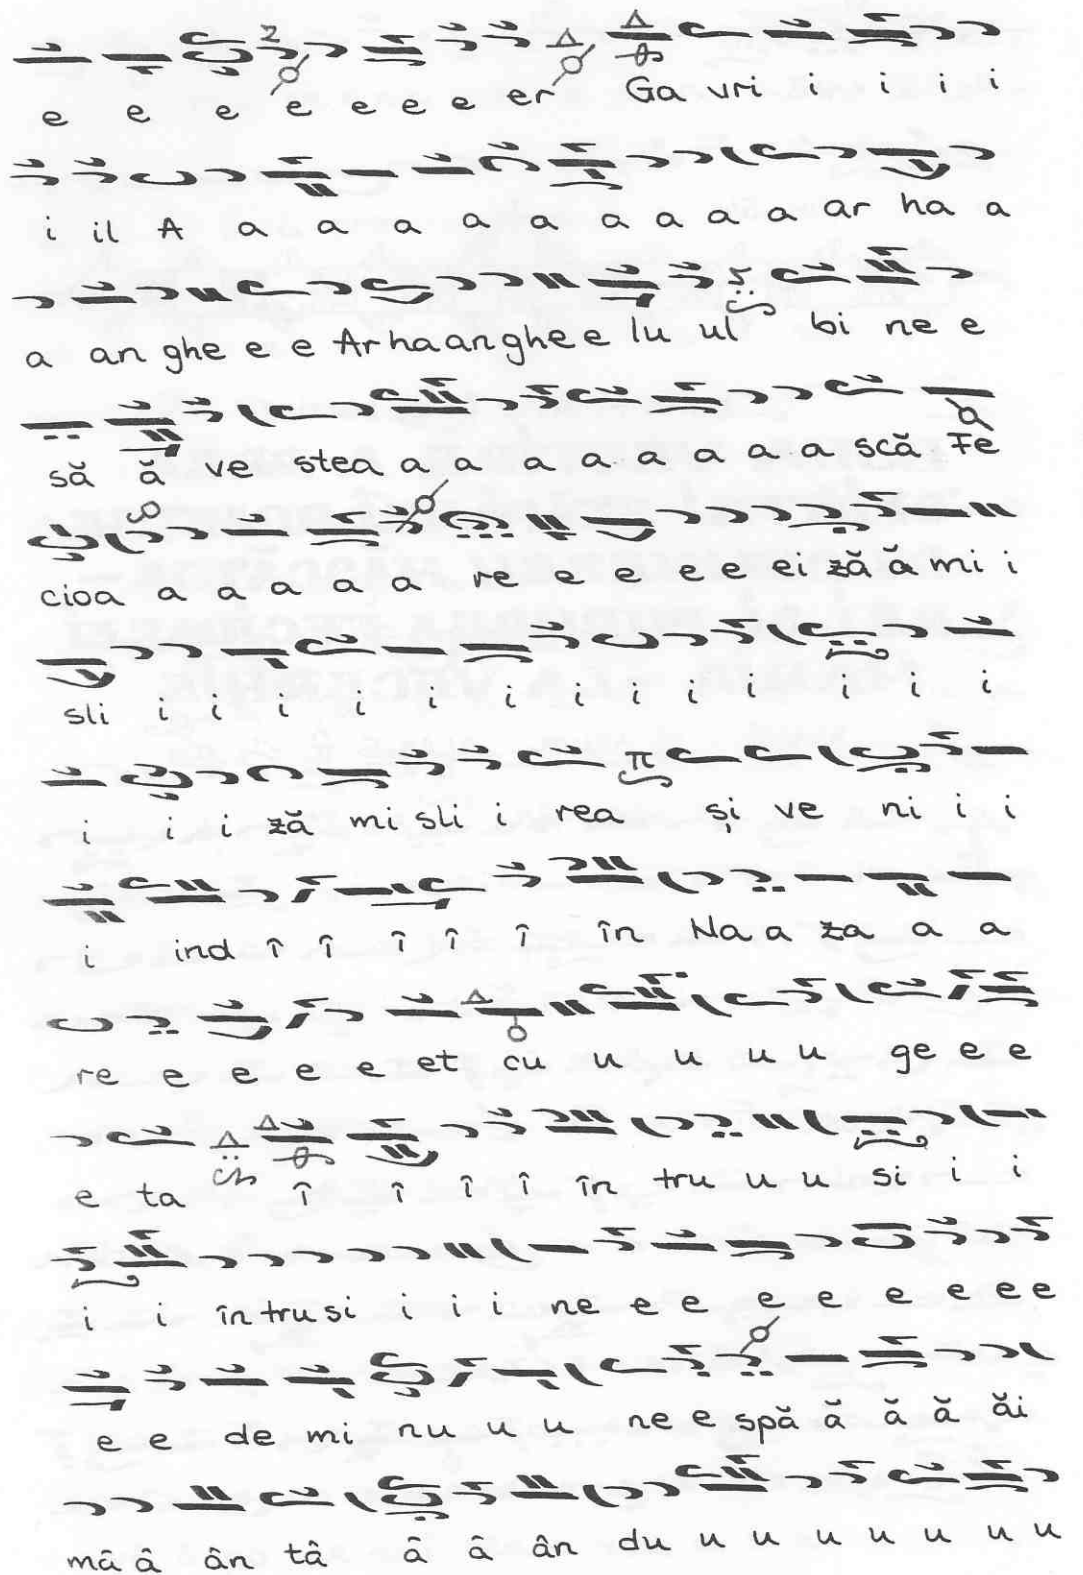 e e e e e e e er Ga vri i i i i
i il A a a a a a a a a ar ha a
a an ghe e e Ar ha an ghe e lu ul bi ne e
să ă ve stea a a a a a a a a scă Fe
cioa a a a a a re e e e e ei ză ă mi i
sli i i i i i i i i i i i i i
i i i ză mi sli i rea și ve ni i i
i ind î î î î î în Na a za a a
re e e e e et cu u u u u ge e e
e ta î î î î în tru u u si i i
i i în tru si i i i ne e e e e e e e
e e de mi nu u u ne e spă ă ă ă ăi
mâ â ân tâ â â ân du u u u u u u u